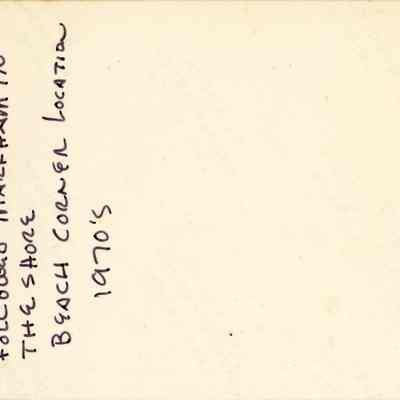 FOLLOWED MARKHAM TO
THE SHORE
BEACH CORNER LOCATION
1970'S